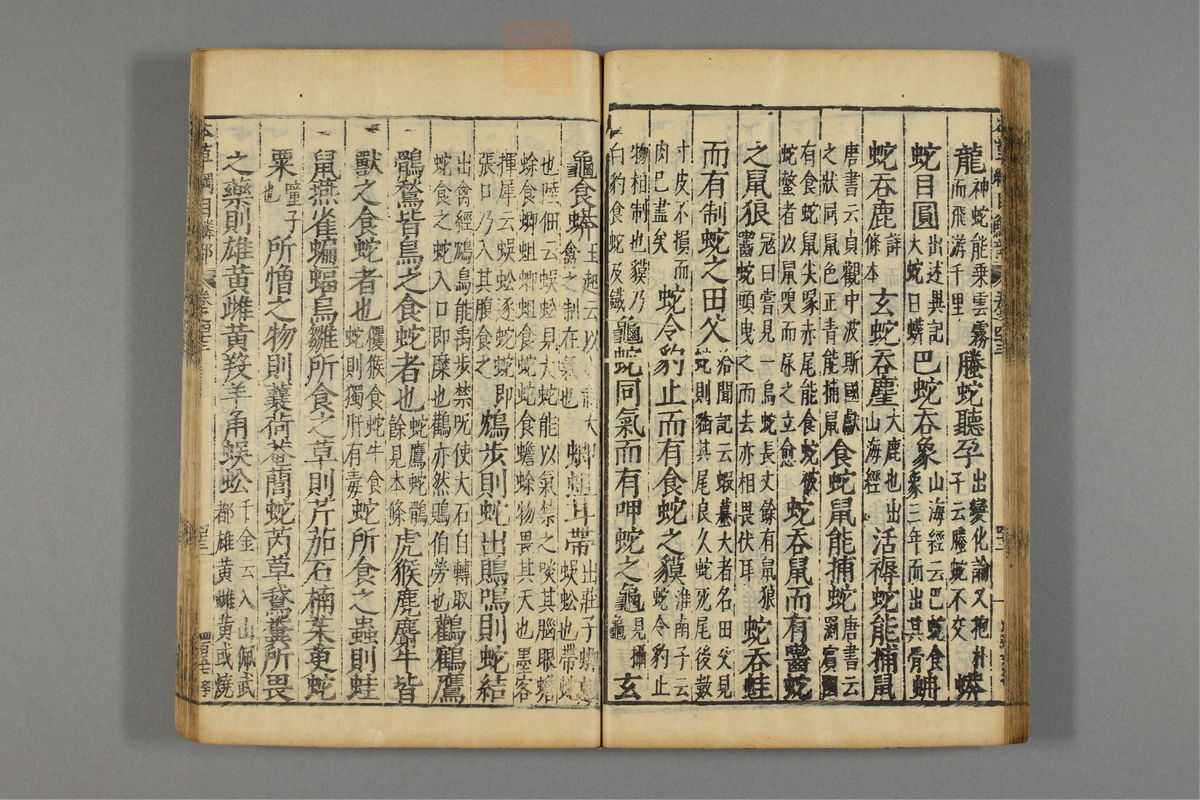 龍神蛇能乘雲霧而飛游千里螣蛇聽孕出變化論又抱朴子云螣蛇不交蟒
蛇目圓出述異記大蛇曰蟒巴蛇吞象山海經云巴蛇食象三年而出其骨蚺
蛇吞鹿詳本條玄蛇吞麈大鹿也出山海經活褥蛇能捕鼠
唐書云貞觀中波斯國獻之狀同鼠色正青能捕鼠食蛇鼠能捕蛇唐書云罽賓國
有食蛇鼠尖喙赤尾能食蛇被蛇螫者以鼠嗅而尿之立愈蛇吞鼠而有齧蛇
之鼠狼寇曰嘗見一烏蛇長丈餘有鼠狼齧蛇頭曳之而去亦相畏伏耳蛇吞蛙
而有制蛇之田父洽聞記云蝦蟇大者名田父見蛇則銜其尾良久蛇死尾後數
寸皮不損而肉已盡矣蛇令豹止而有食蛇之貘淮南子云蛇令豹止
物相制也貘乃白豹食蛇及鐵龜蛇同氣而有呷蛇之龜見攝龜玄
本草綱目鱗部 卷之四十三
龜食蟒王起云以小制大禽之制在氣也蝍蛆甘帶出莊子蝍蛆蜈蚣也帶蛇
也陸佃云蜈蚣見大蛇能以氣禁之啖其腦眼蟾蜍食蝍蛆蝍蛆食蛇蛇食蟾蜍物畏其天也墨客
揮犀云蜈蚣逐蛇蛇即張口乃入其腹食之鴆步則蛇出鵙鳴則蛇結
出禽經鴆鳥能禹步禁呪使大石自轉取蛇食之蛇入口即糜也鸛亦然鵙伯勞也鸛鶴鷹
鶻鶖皆鳥之食蛇者也蛇鷹蛇鶻餘見本條虎猴麂麝牛皆
獸之食蛇者也玃猴食蛇牛食蛇則獨肝有毒蛇所食之蟲則蛙
鼠燕雀蝙蝠鳥雛所食之草則芹茄石楠茱萸蛇
粟瞳子也所憎之物則蘘荷菴䕡蛇芮草鵞糞所畏
之藥則雄黃雌黃羖羊角蜈蚣千金云入山佩武都雄黃雌黃或燒
本草綱目鱗部 卷之四十三